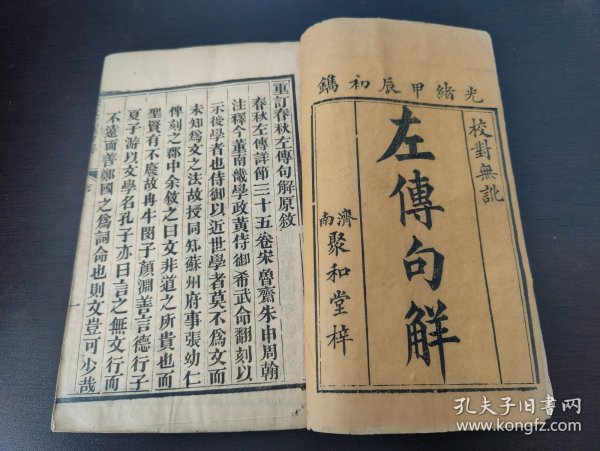 光緒甲辰初鐫
校對無訛
左傳句解
濟南
聚和堂梓
重訂春秋左傳句解原敘
春秋左傳詳節三十五卷宋魯齋朱申周翰
注釋今董南畿學政黃侍御希武命翻刻以
示後學者也侍御以近世學者莫不為文而
未知為文之法故授同知蘇州府事張幼仁
俾刻之郡中余敘之曰文非道之所貴也而
聖賢有不廢故冉牛閔子顏淵善言德行子
夏子游以文學名孔子亦曰言之無文行而
不遠而善鄭國之為詞命也則文豈可少哉
一
孔夫子旧书网
www.kongfz.com